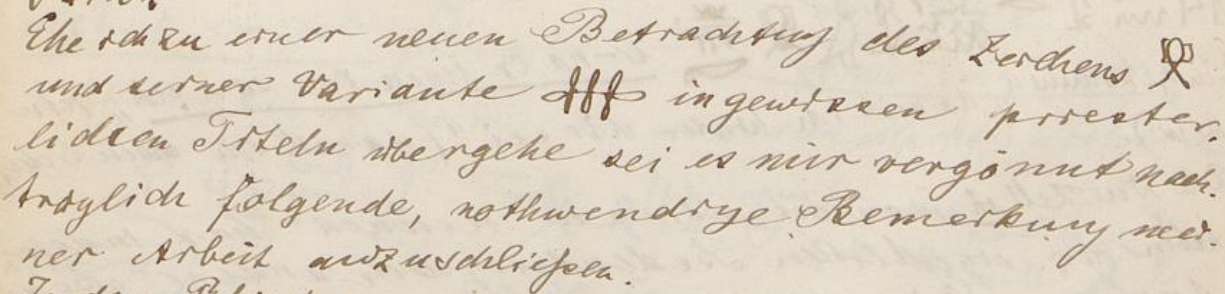 Ehe ich zu einer neuen Betrachtung des Zeichens
und seiner Variante in gewissen priester-
lichen Titeln übergehe sei es mir vergönnt nach-
träglich folgende, nothwendige Bemerkung mei-
ner Arbeit anzuschließen.